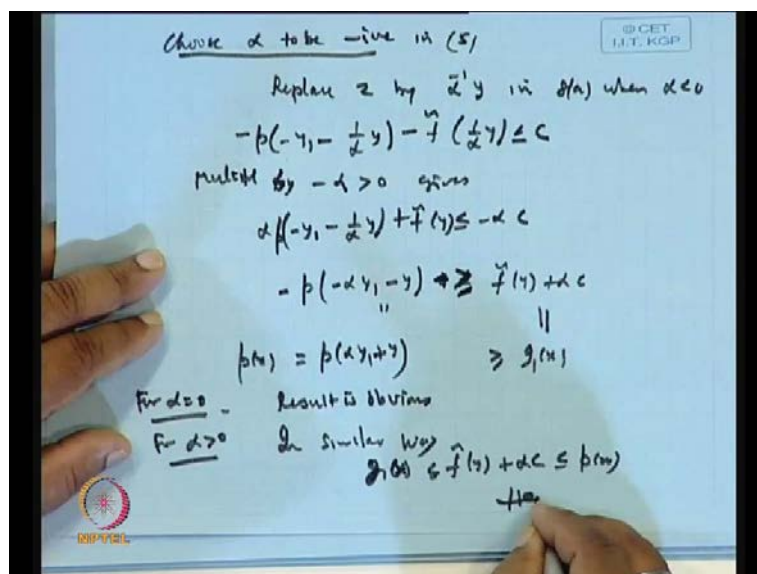 © CET
I.I.T. KGP
Choose α to be -ive in (5)
Replace z by α⁻¹y in 8(a) when α<0
-p(-y₁ - 1/α y) - f̃(1/α y) ≤ c
by -α > 0 gives
α p(-y₁ - 1/α y) + f̃(y) ≤ -α c
- p(-α y₁ - y) ≥ f̃(y) + α c
|| ||
p(x) = p(α y₁ + y) ≥ g₁(x)
For α=0 - Result is obvious
For α>0 In similar way
g₁(x) ≤ f̃(y) + αc ≤ p(x)
NPTEL